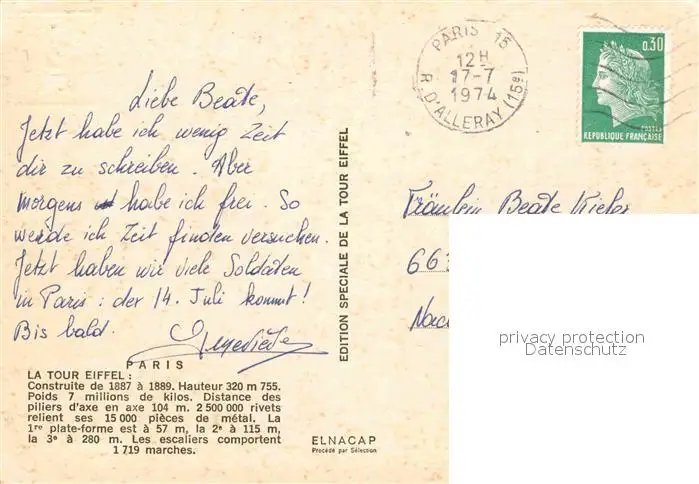 Liebe Beate,
Jetzt habe ich wenig Zeit
dir zu schreiben. Aber
morgens habe ich frei. So
werde ich Zeit finden versuchen.
Jetzt haben wir viele Soldaten
in Paris : der 14. Juli kommt!
Bis bald.
PARIS
LA TOUR EIFFEL :
Construite de 1887 à 1889. Hauteur 320 m 755.
Poids 7 millions de kilos. Distance des
piliers d'axe en axe 104 m. 2 500 000 rivets
relient ses 15 000 pièces de métal. La
1re plate-forme est à 57 m, la 2e à 115 m,
la 3e à 280 m. Les escaliers comportent
1 719 marches.
EDITION SPECIALE DE LA TOUR EIFFEL
ELNACAP
Procédé par Sélection
PARIS 15
12H
17-7
1974
R. D'ALLERAY (15e)
0,30
POSTES
REPUBLIQUE FRANÇAISE
Fräulein Beate
663
privacy protection
Datenschutz